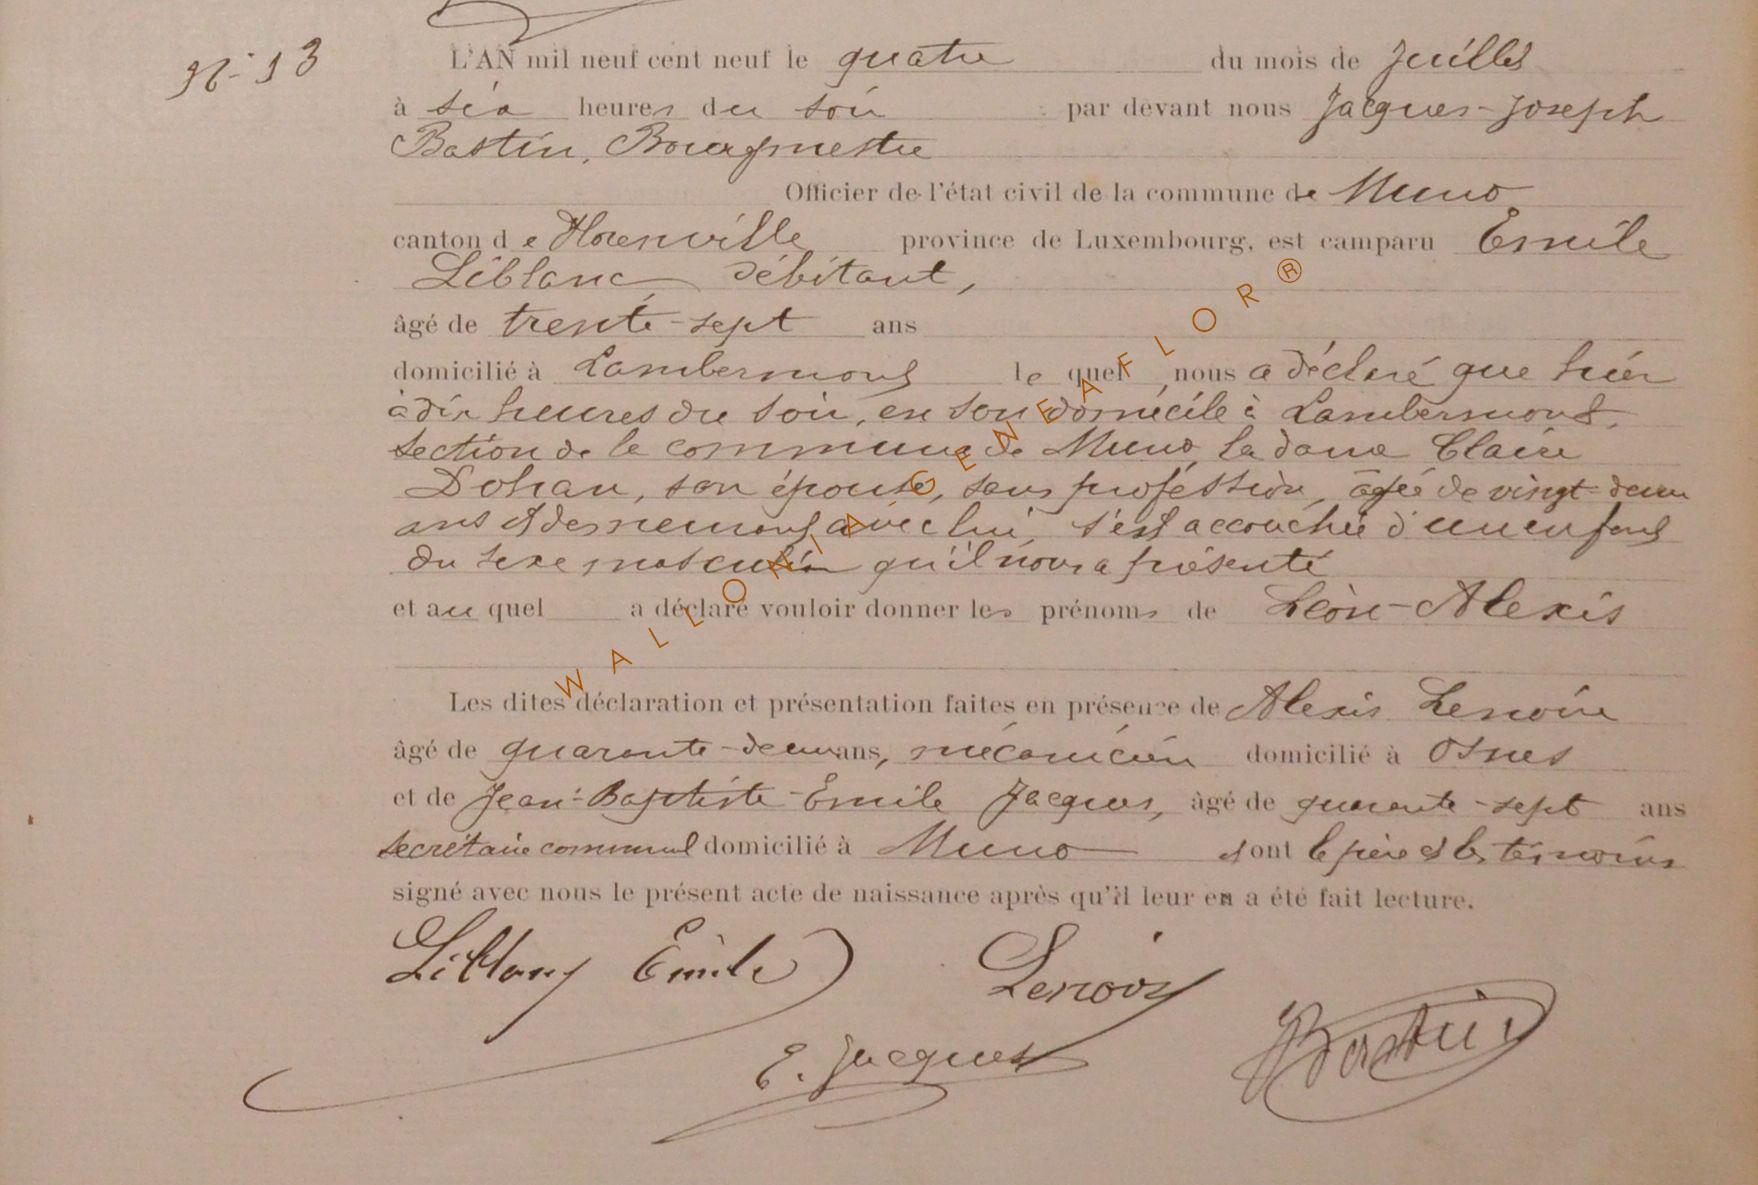 N° 13
L'AN mil neuf cent neuf le quatre du mois de Juillet
à six heures du soir par devant nous Jacques-Joseph
Bastin, Bourgmestre
Officier de l'état civil de la commune de Muno
canton de Florenville province de Luxembourg, est camparu Emile
Léblanc, débitant,
âgé de trente-sept ans
domicilié à Lambermont le quel nous a déclaré que hier
à dix heures du soir, en son domicile à Lambermont,
section de la commune de Muno, la dame Claire
Dohan, son épouse, sans proféssion, âgée de vingt-deux
ans et demeurant avec lui, s'est accouchée d'un enfant
du sexe masculin qu'il nous a présenté
et au quel a déclaré vouloir donner les prénoms de Léon-Alexis
Les dites déclaration et présentation faites en présence de Alexis Lenoire
âgé de quarante-deux ans, mécanicien domicilié à Osnes
et de Jean-Baptiste-Emile Jacques, âgé de quarante-sept ans
secrétaire communal domicilié à Muno sont le père et les témoins
signé avec nous le présent acte de naissance après qu'il leur en a été fait lecture.
Léblanc Emile Lenoir
E. Jacques JBastin
WALLONIA GENEAFLOR®